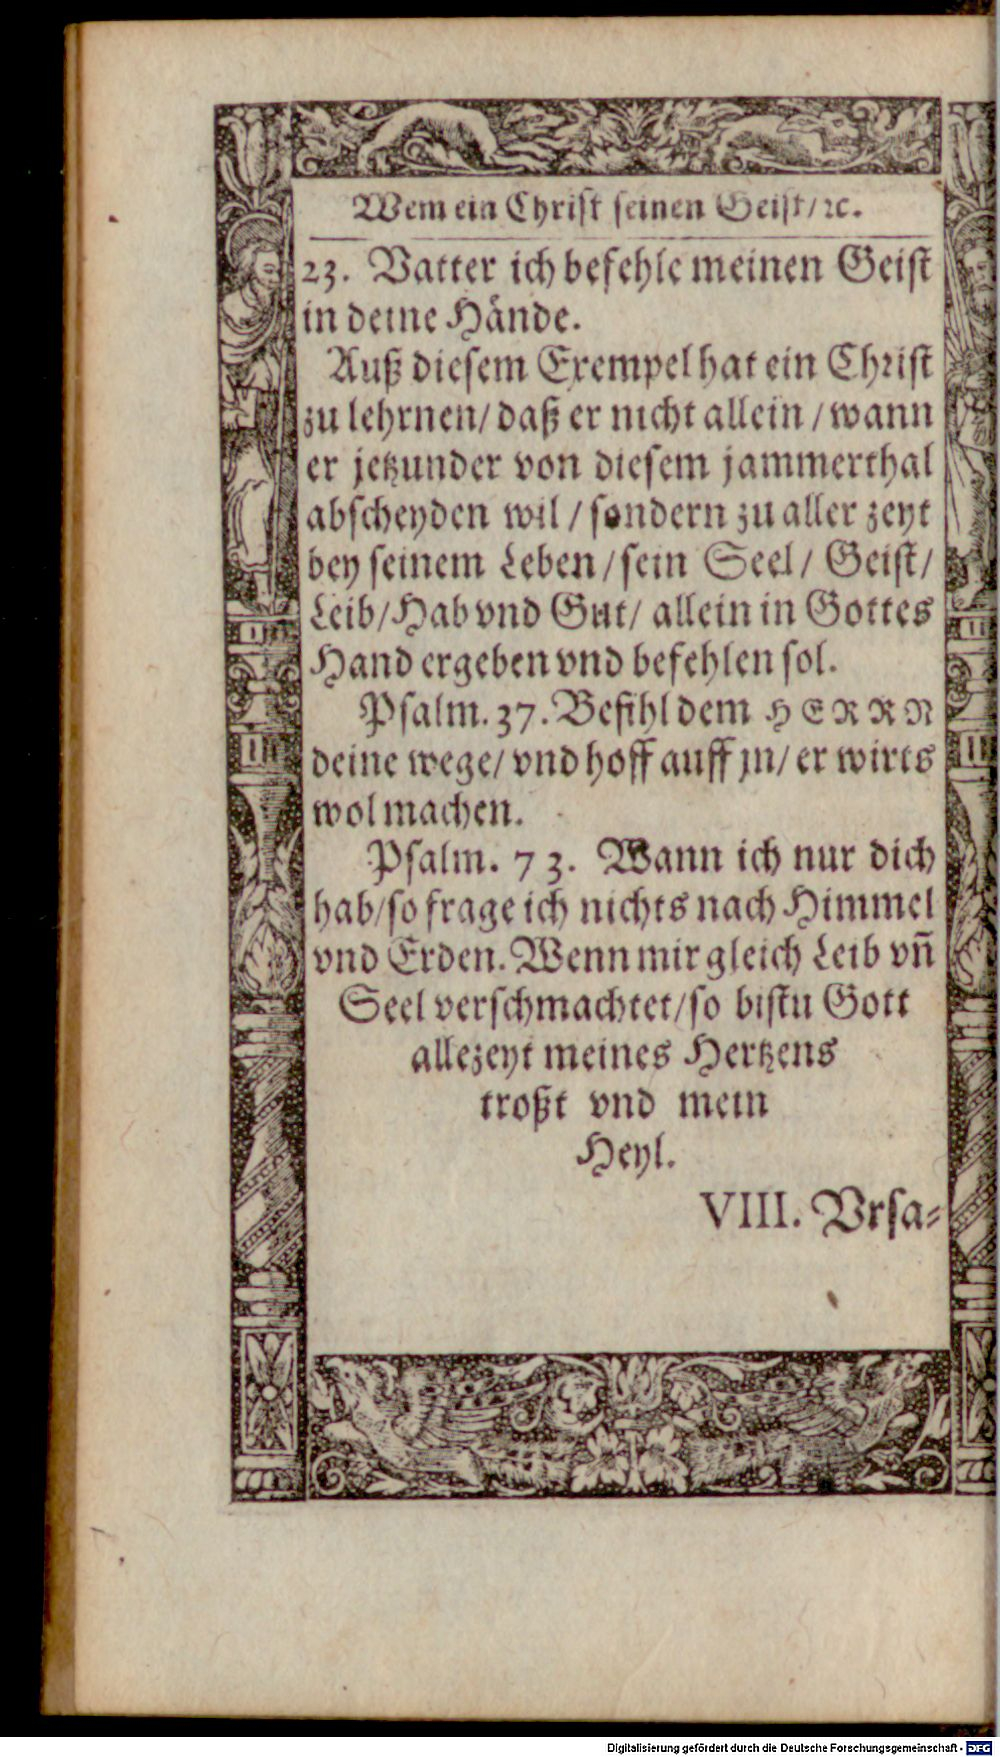 Wem ein Christ seinen Geist/ ꝛc.
23. Vatter ich befehle meinen Geist
in deine Hände.
Auß diesem Exempel hat ein Christ
zu lehrnen/ daß er nicht allein / wann
er jetzunder von diesem jammerthal
abscheyden wil / sondern zu aller zeyt
bey seinem Leben / sein Seel / Geist /
Leib / Hab vnd Gut / allein in Gottes
Hand ergeben vnd befehlen sol.
Psalm. 37. Befihl dem HERRN
deine wege / vnd hoff auff jn / er wirts
wol machen.
Psalm. 73. Wann ich nur dich
hab / so frage ich nichts nach Himmel
vnd Erden. Wenn mir gleich Leib vñ
Seel verschmachtet / so bistu Gott
allezeyt meines Hertzens
troßt vnd mein
Heyl.
VIII. Vrsa-
Digitalisierung gefördert durch die Deutsche Forschungsgemeinschaft - DFG